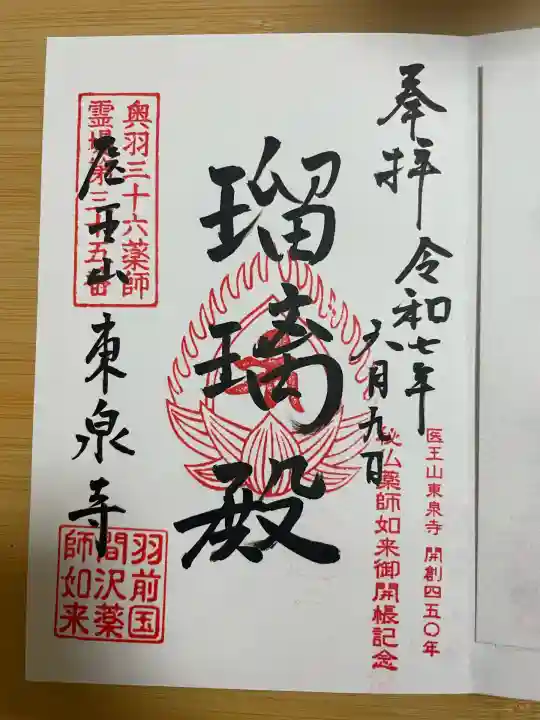 奉拝
令和七年
六月九日
医王山東泉寺 開創四五〇年
秘仏薬師如来御開帳記念
瑠璃殿
奥羽三十六薬師
霊場第三十五番
医王山 東泉寺
羽前国
間沢薬
師如来